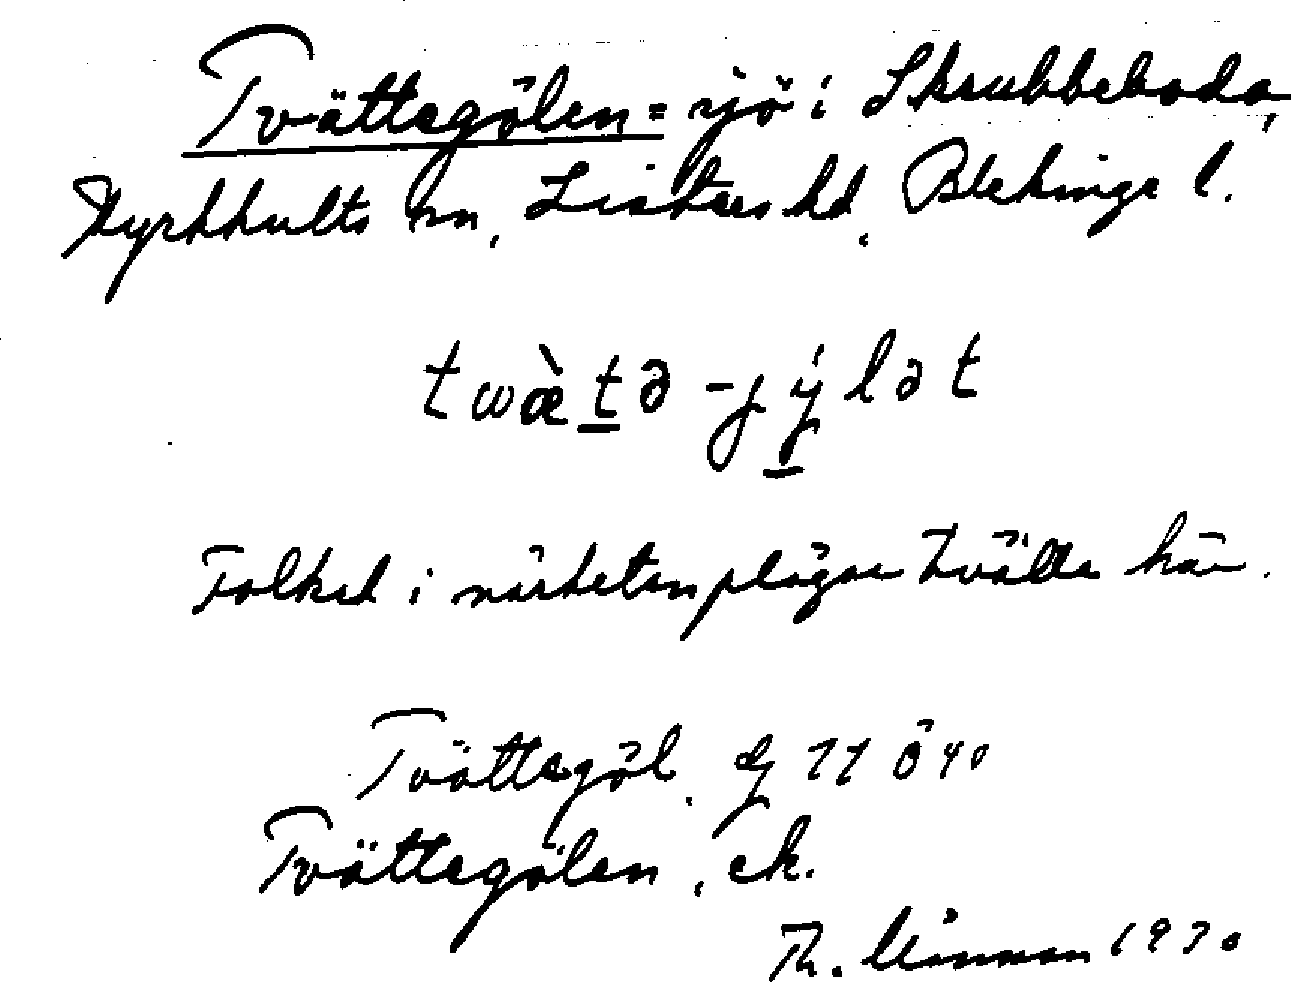 Tvättegölen = sjö i Skrubbeboda,
Kyrkhults sn, Listers hd, Blekinge l.
twæ̀tə -jýlət
Folket i närheten plägar tvätta här.
Tvättegöl. 
Tvättegölen, ek.
Th. 1930